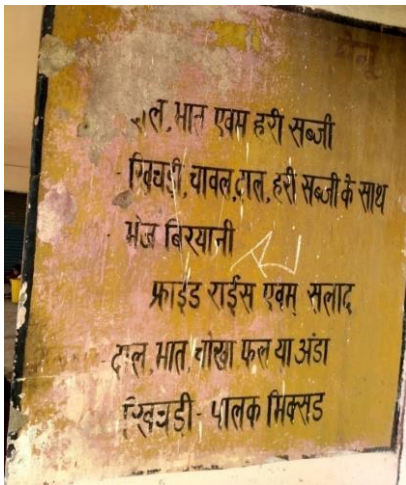 दाल, भात एवम हरी सब्जी
खिचड़ी, चावल, दाल, हरी सब्जी के साथ
भेज बिरयानी
फ्राईड राईस एवम् सलाद
दाल, भात, चोखा फल या अंडा
खिचड़ी - पालक मिक्सड